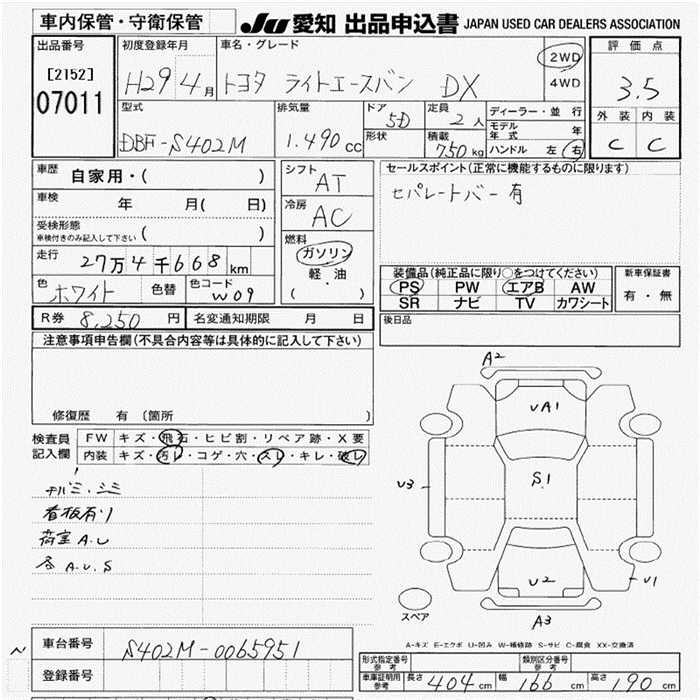 車内保管・守衛保管
JU 愛知 出品申込書 JAPAN USED CAR DEALERS ASSOCIATION
出品番号
[2152]
07011
初度登録年月
H29 4月
車名・グレード
トヨタ ライトエースバン DX
2WD
4WD
評価点
3.5
外装 内装
C C
型式
DBF-S402M
排気量
1.490cc
ドア
5D
形状
定員
2人
積載
750kg
ディーラー・並行
モデル年式 年
ハンドル 左 右
車歴
自家用・( )
車検 年 月( 日)
受検形態
車検付きのみ記入して下さい ( )
走行 27万4千668km
色 ホワイト 色替 色コード W09
シフト
AT
冷房
AC
燃料
ガソリン
軽・油
( )
セールスポイント(正常に機能するものに限ります)
セパレートバー有
装備品(純正品に限り○をつけてください)
PS PW エアB AW
SR ナビ TV カワシート
新車保証書
有・無
後日品
R券 8,250円 名変通知期限 月 日
注意事項申告欄(不具合内容等は具体的に記入して下さい)
修復歴 有 (箇所 )
検査員記入欄
FW キズ・飛石・ヒビ割・リペア跡・X要
内装 キズ・汚レ・コゲ・穴・スレ・キレ・破レ
看板有り
荷室A.U
各A.U.S
A2
UA1
U3
S1
U2
U1
A3
スペア
A-キズ E-エクボ U-凹み W-補修跡 S-サビ C-腐食 XX-交換済
車台番号 S402M-0065951
登録番号
形式指定番号 参考
類別区分番号 参考
車庫証明用 参考 長さ 404cm 幅 166cm 高さ 190cm